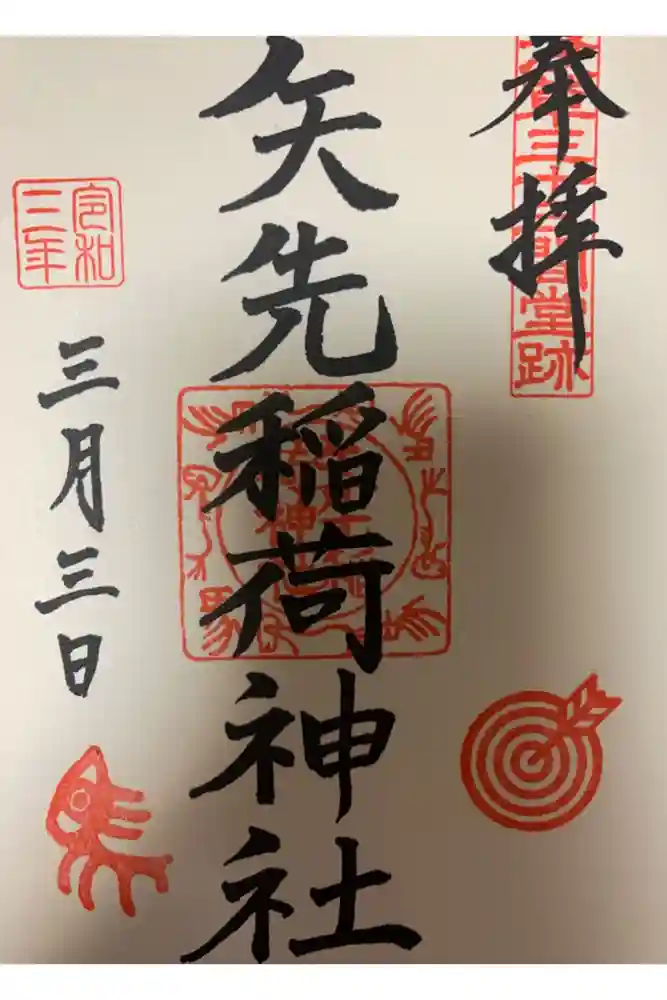 奉拝
三十三間堂跡
矢先稲荷神社
令和
三年
三月三日